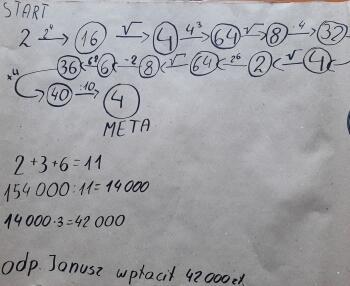 START
2 2⁴ → 16 √ → 4 4³ → 64 √ → 8 ·4 → 32
36 ← 6² 6 ← -2 8 ← √ 64 ← 2⁶ 2 ← √ 4
+4 → 40 :10 → 4
META
2+3+6=11
154 000:11=14000
14 000·3=42 000
odp. Janusz wpłacił 42000 zł.